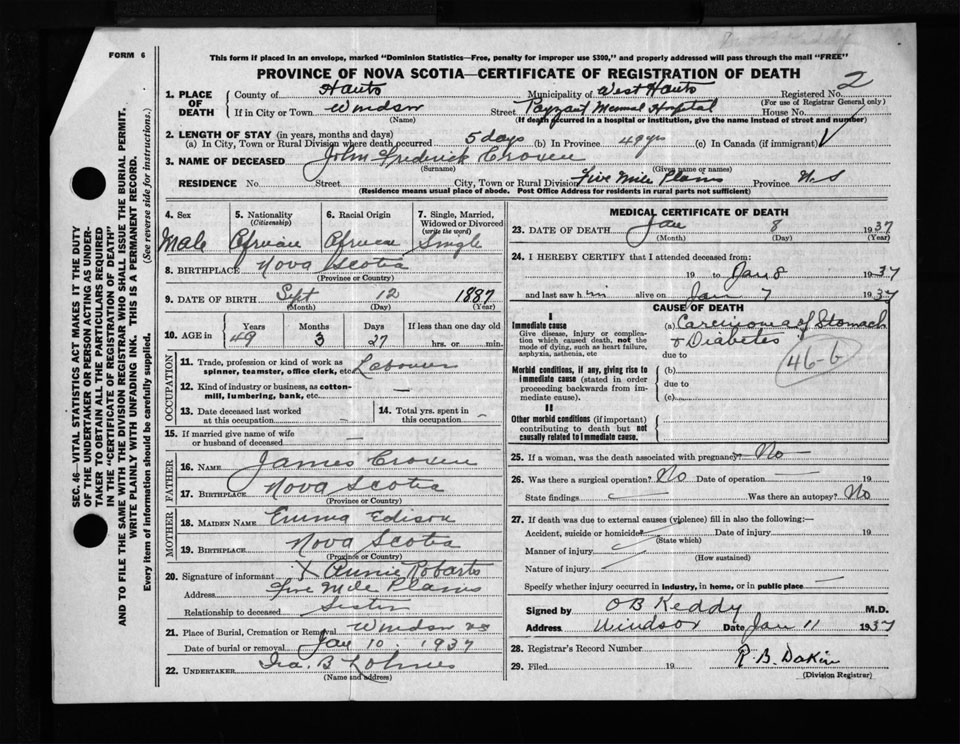 FORM 6
This form if placed in an envelope, marked "Dominion Statistics—Free, penalty for improper use $300," and properly addressed will pass through the mail "FREE"
PROVINCE OF NOVA SCOTIA—CERTIFICATE OF REGISTRATION OF DEATH
1. PLACE OF DEATH County of Hants Municipality of West Hants Registered No. 2
(For use of Registrar General only)
If in City or Town Windsor Street Payzant Memorial Hospital House No.
(Name) (If death occurred in a hospital or institution, give the name instead of street and number)
2. LENGTH OF STAY (in years, months and days)
(a) In City, Town or Rural Division where death occurred 5 days (b) In Province 49 yrs (c) In Canada (if immigrant)
3. NAME OF DECEASED John Frederick Croxen
(Surname) (Given name or names)
RESIDENCE No. Street City, Town or Rural Division Five Mile Plains Province N.S
(Residence means usual place of abode. Post Office Address for residents in rural parts not sufficient)
4. Sex 5. Nationality (Citizenship) 6. Racial Origin 7. Single, Married, Widowed or Divorced (write the word)
Male African African Single
8. BIRTHPLACE Nova Scotia
(Province or Country)
9. DATE OF BIRTH Sept 12 1887
(Month) (Day) (Year)
10. AGE in Years Months Days If less than one day old
49 3 27 hrs. or min.
OCCUPATION
11. Trade, profession or kind of work as spinner, teamster, office clerk, etc. Labourer
12. Kind of industry or business, as cotton-mill, lumbering, bank, etc. —
13. Date deceased last worked at this occupation — 14. Total yrs. spent in this occupation —
15. If married give name of wife or husband of deceased —
FATHER
16. NAME James Croxen
17. BIRTHPLACE Nova Scotia
(Province or Country)
MOTHER
18. MAIDEN NAME Emma Edison
19. BIRTHPLACE Nova Scotia
(Province or Country)
20. Signature of informant X Annie Robarts
Address Five Mile Plains
Relationship to deceased Sister
21. Place of Burial, Cremation or Removal Windsor NS
Date of burial or removal Jan 10 1937
22. UNDERTAKER Ira. B Lohnes
(Name and address)
MEDICAL CERTIFICATE OF DEATH
23. DATE OF DEATH Jan 8 1937
(Month) (Day) (Year)
24. I HEREBY CERTIFY that I attended deceased from:
19 to Jan 8 1937
and last saw him alive on Jan 7 1937
CAUSE OF DEATH
I
Immediate cause (a) Carcinoma of Stomach
Give disease, injury or complication which caused death, not the mode of dying, such as heart failure, asphyxia, asthenia, etc
& Diabetes
due to
46-b
Morbid conditions, if any, giving rise to immediate cause (stated in order proceeding backwards from immediate cause). (b)
due to
(c)
II
Other morbid conditions (if important) contributing to death but not causally related to immediate cause.
25. If a woman, was the death associated with pregnancy? No —
26. Was there a surgical operation? No Date of operation — 19
State findings — Was there an autopsy? No
27. If death was due to external causes (violence) fill in also the following:—
Accident, suicide or homicide Date of injury 19
(State which)
Manner of injury
(How sustained)
Nature of injury
Specify whether injury occurred in industry, in home, or in public place —
Signed by O B Keddy M.D.
Address Windsor Date Jan 11 1937
28. Registrar's Record Number
29. Filed 19 R. B. Dakin
(Division Registrar)
SEC. 46—VITAL STATISTICS ACT MAKES IT THE DUTY
OF THE UNDERTAKER OR PERSON ACTING AS UNDER-
TAKER TO OBTAIN ALL THE PARTICULARS REQUIRED
IN THE "CERTIFICATE OF REGISTRATION OF DEATH"
AND TO FILE THE SAME WITH THE DIVISION REGISTRAR WHO SHALL ISSUE THE BURIAL PERMIT.
WRITE PLAINLY WITH UNFADING INK. THIS IS A PERMANENT RECORD.
Every item of information should be carefully supplied. (See reverse side for instructions.)